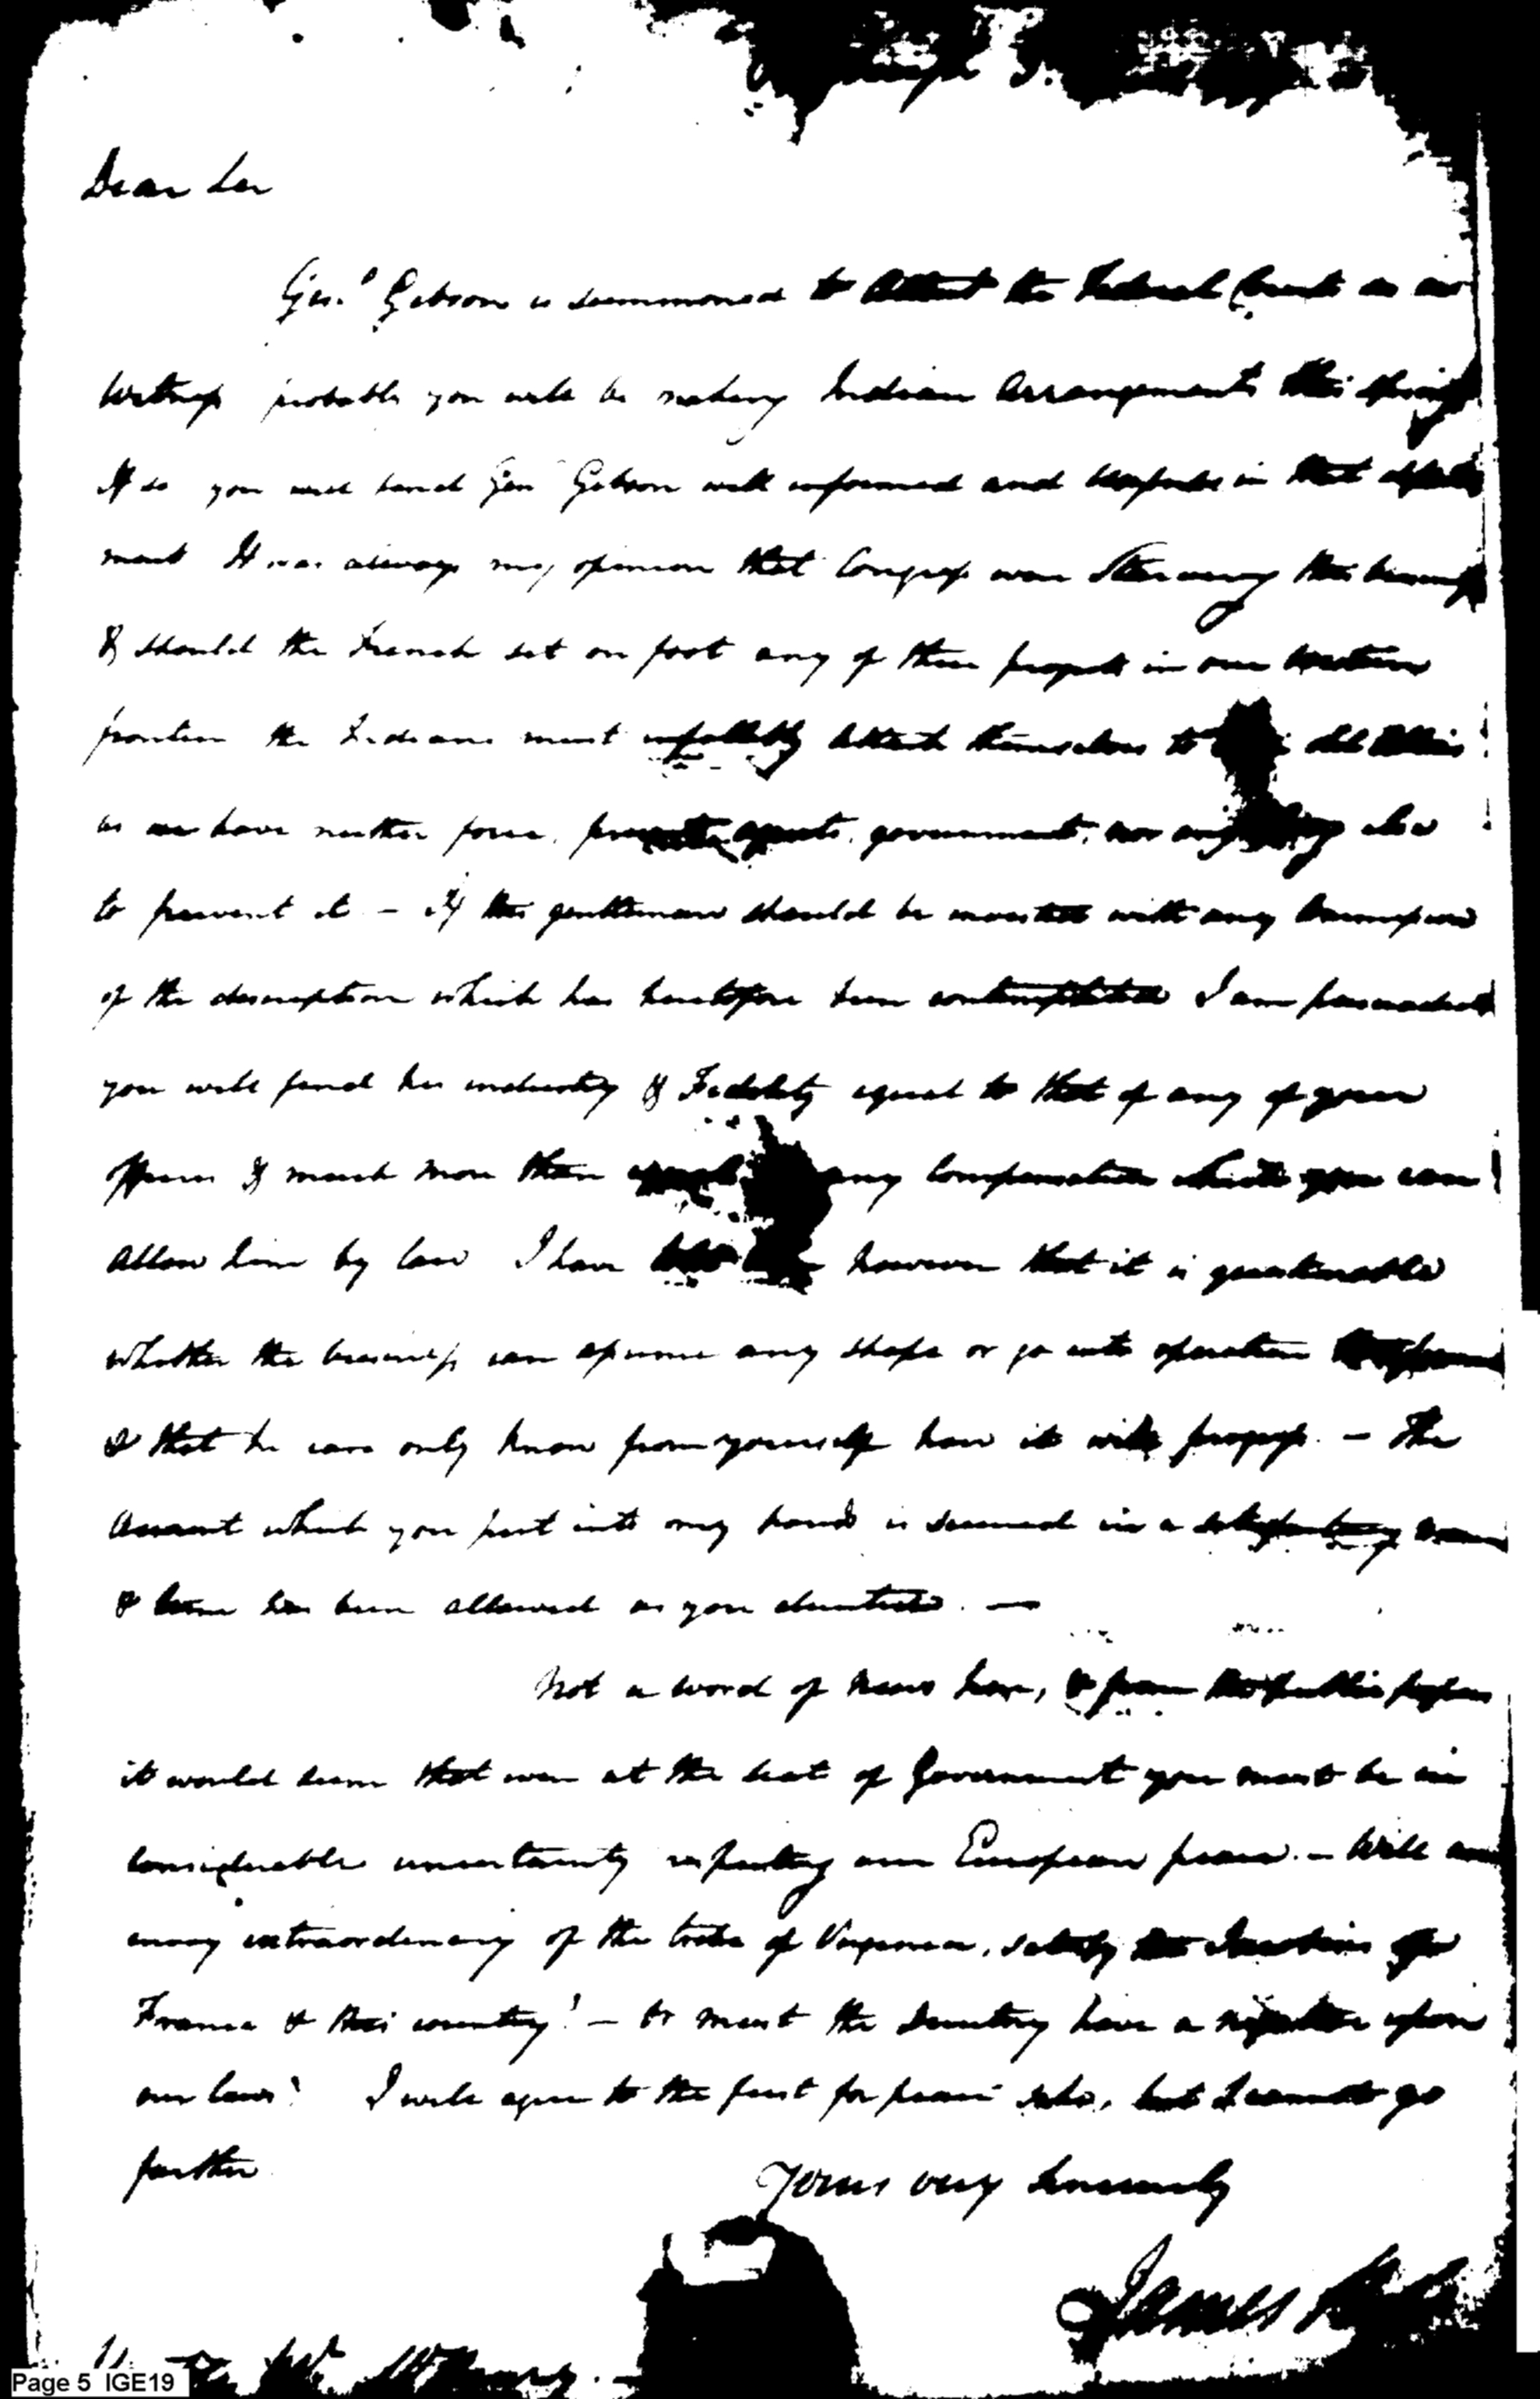 Dear Sir
Genl Gibson is summoned to Attend the Federal Court as an
Witness probable you will be making Indian Arrangements this spring
If so you will find Gen Gibson well informed and useful in that depart
ment It was always my opinion that Congress were Starving this business
& should the French set on foot any of their projects in our western
frontier the Indians must infallibly Attach themselves to their old Allies
as we have neither force, presents, agents, government, nor anything else
to prevent it – If this gentleman should be invested with any Commission
of the description which has heretofore been contemplated I am persuaded
you will find his industry & Fidelity equal to that of any of your
officers & much more than equal any Compensation which you can
Allow him by law I have told him however that it is questionable
whether the business can assume any shape or go into operation
& that he can only know from yourself how it will progress. – The
Account which you put into my hands is secured in a satisfactory
& time has been allowed as you directed. —
Not a word of News here, & from the public papers
it would seem that even at the seat of Government you must be in
considerable uncertainty respecting our European peace. – Will an
envoy extraordinary of the tribe of Virginia, satisfy the Jacobins of
France & this country? – Or must the Directory have a negative upon
our laws? I will agree to the first for peace sake, but I cannot go
further
Yours very sincerely
James
Page 5 IGE19